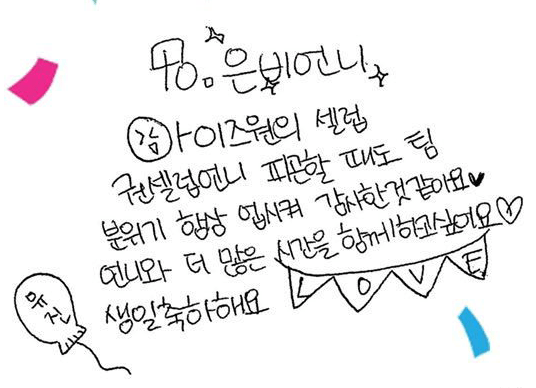 To. 은비언니
㉮ 아이즈원의 셀럽
권셀럽언니 피곤할 때도 팀
분위기 항상 업시켜 감사한것같아요♥
언니와 더 많은 시간을 함께하고싶어요♡
생일축하해요
LOVE
유진